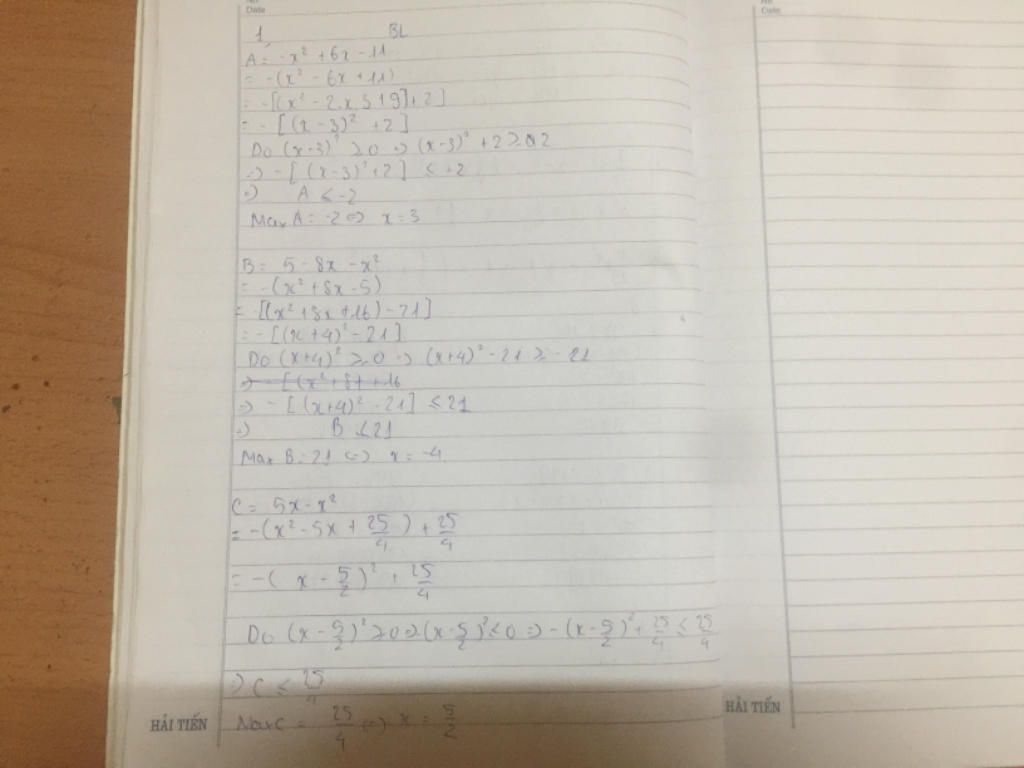 No
Date
No
Date
1 BL
A = -x² + 6x - 11
= -(x² - 6x + 11)
= -[(x² - 2.x.3 + 9) + 2]
= -[(x - 3)² + 2]
Do (x-3)² ≥ 0 => (x-3)² + 2 ≥ 2
=> -[(x-3)² + 2] ≤ -2
=> A ≤ -2
Max A = -2 <=> x = 3
B = 5 - 8x - x²
= -(x² + 8x - 5)
= -[(x² + 8x + 16) - 21]
= -[(x+4)² - 21]
Do (x+4)² ≥ 0 => (x+4)² - 21 ≥ -21
=> -[(x² + 8x + 16
=> -[(x+4)² - 21] ≤ 21
=> B ≤ 21
Max B = 21 <=> x = -4
C = 5x - x²
= -(x² - 5x + 25/4) + 25/4
= -(x - 5/2)² + 25/4
Do (x - 5/2)² ≥ 0 => (x - 5/2)² ≤ 0 => -(x - 5/2)² + 25/4 ≤ 25/4
=> C ≤ 25/4
Max C = 25/4 <=> x = 5/2
HẢI TIẾN
HẢI TIẾN